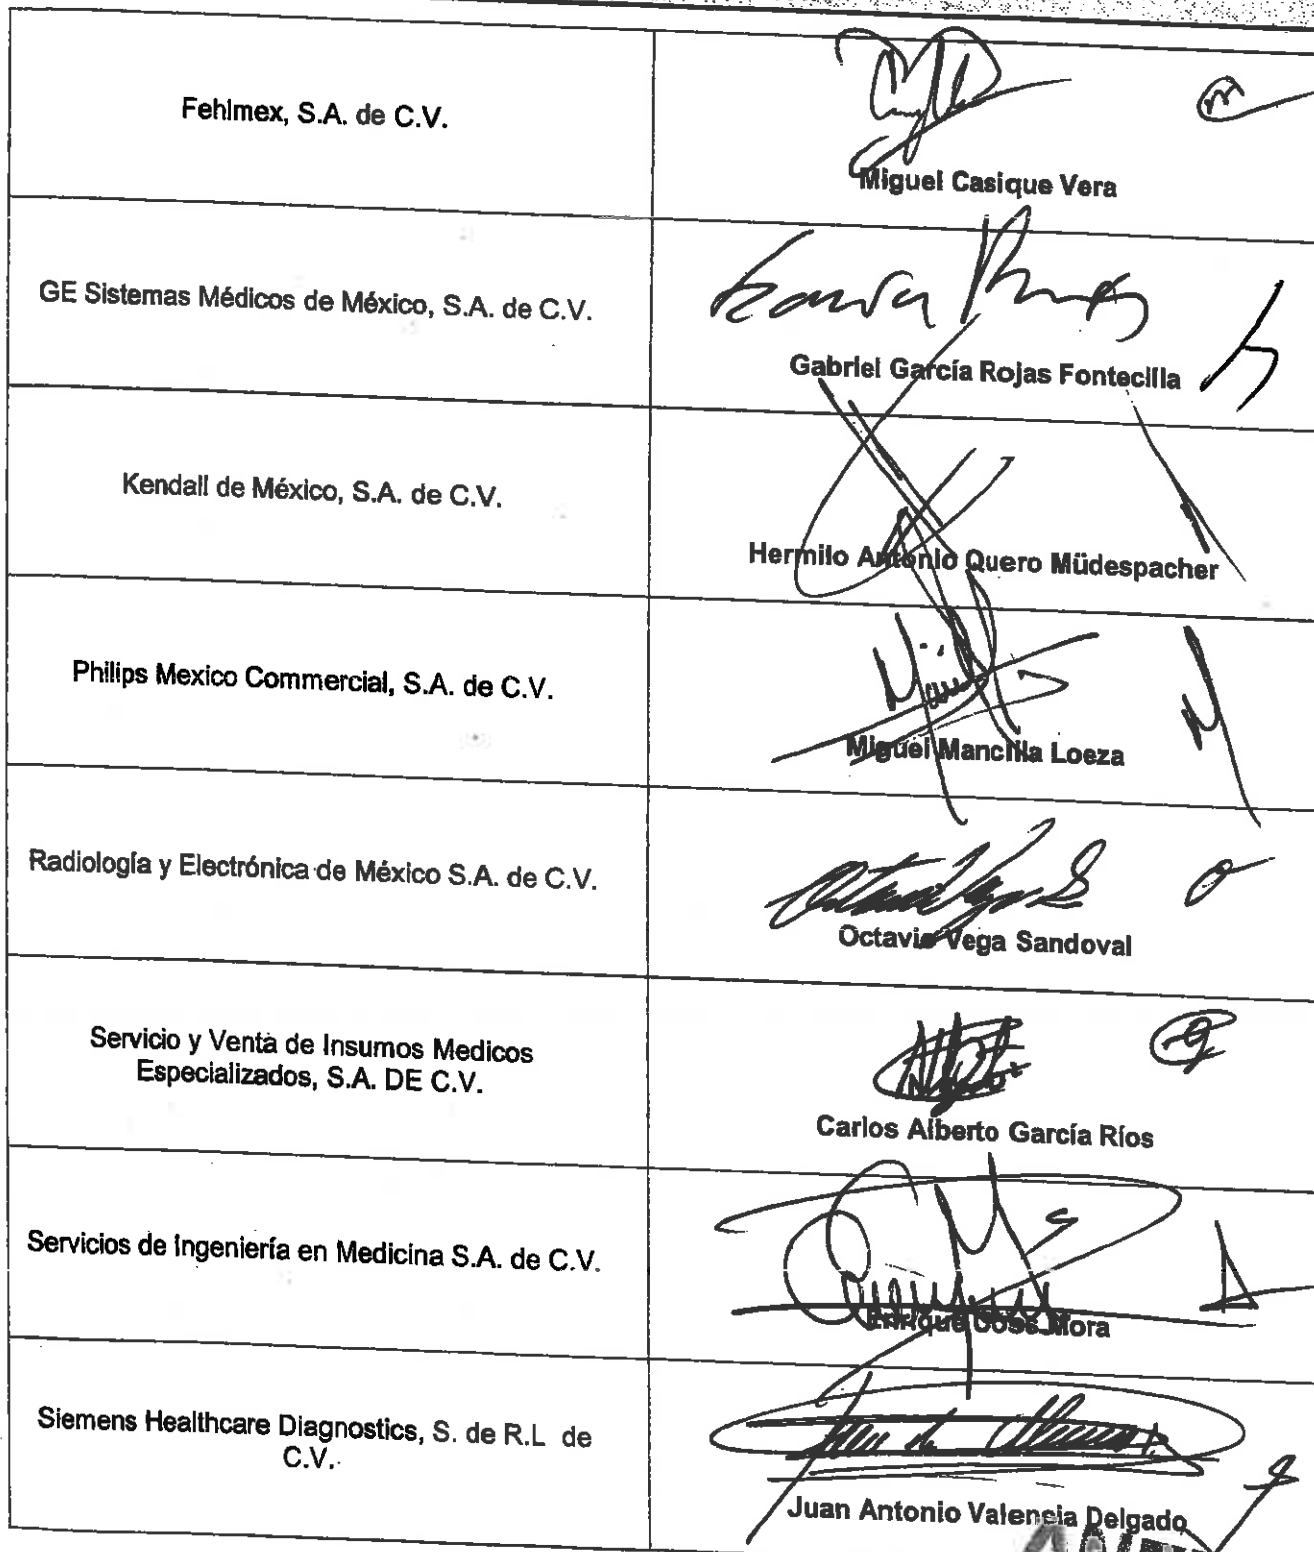 Fehlmex, S.A. de C.V.
Miguel Casique Vera
GE Sistemas Médicos de México, S.A. de C.V.
Gabriel García Rojas Fontecilla
Kendall de México, S.A. de C.V.
Hermilo Antonio Quero Müdespacher
Philips Mexico Commercial, S.A. de C.V.
Miguel Mancilla Loeza
Radiología y Electrónica de México S.A. de C.V.
Octavio Vega Sandoval
Servicio y Venta de Insumos Medicos
Especializados, S.A. DE C.V.
Carlos Alberto García Ríos
Servicios de Ingeniería en Medicina S.A. de C.V.
Enrique Coss Mora
Siemens Healthcare Diagnostics, S. de R.L de
C.V.
Juan Antonio Valencia Delgado